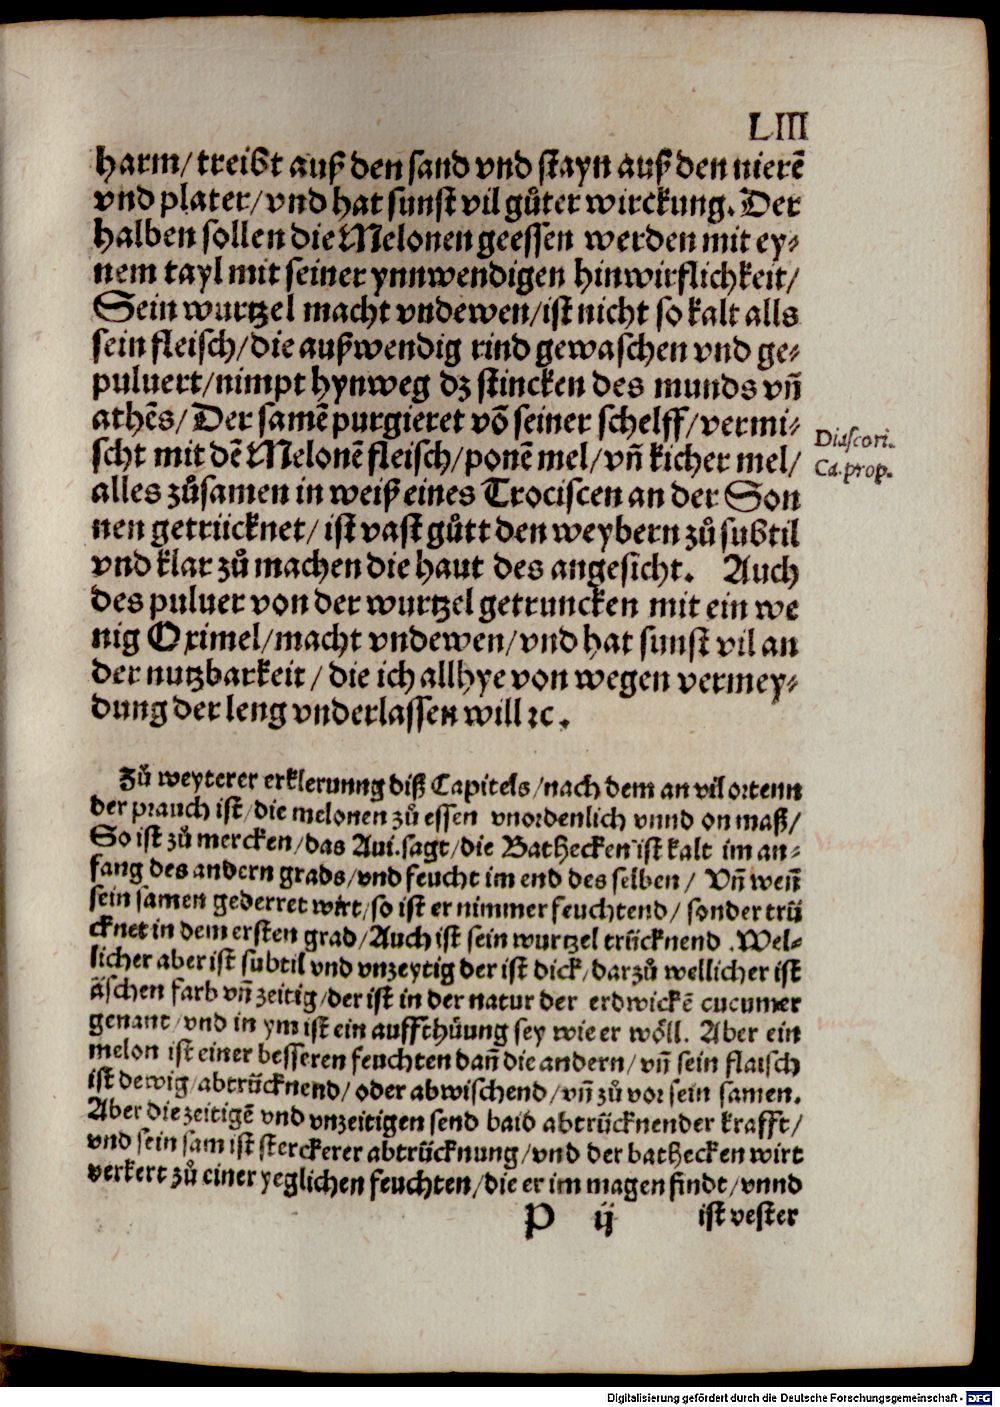 LIII
harm/ treibt auß den sand vnd stayn auß den nierē
vnd plater/ vnd hat sunst vil gůter wirckung. Der
halben sollen die Melonen geessen werden mit ey⸗
nem tayl mit seiner ynnwendigen hinwirflichkeit/
Sein wurtzel macht vndewen/ ist nicht so kalt alls
sein fleisch/ die außwendig rind gewaschen vnd ge⸗
puluert/ nimpt hynweg dz stincken des munds vñ
athēs/ Der samē purgieret vō seiner schelff/ vermi⸗
scht mit dē Melonē fleisch/ ponē mel/ vñ kicher mel/
Diascori.
Ca. prop.
alles zůsamen in weiß eines Trociscen an der Son
nen getrücknet/ ist vast gůtt den weybern zů subtil
vnd klar zů machen die haut des angesicht. Auch
des puluer von der wurtzel getruncken mit ein we
nig Oximel/ macht vndewen/ vnd hat sunst vil an
der nutzbarkeit/ die ich allhye von wegen vermey⸗
dung der leng vnderlassen will ꝛc.
Zů weyterer erklerunng diß Capitels/ nach dem an vil ortenn
der prauch ist/ die melonen zů essen vnordenlich vnnd on maß/
So ist zů mercken/ das Aui. sagt/ die Bathecken ist kalt im an⸗
fang des andern grads/ vnd feucht im end des selben/ Vñ weñ
sein samen gederret wirt/ so ist er nimmer feuchtend/ sonder trü
cknet in dem ersten grad/ Auch ist sein wurtzel trücknend. Wel⸗
licher aber ist subtil vnd vnzeytig der ist dick/ darzů wellicher ist
äschen farb vñ zeitig/ der ist in der natur der erdwickē cucumer
genant/ vnd in ym ist ein auffthüung sey wie er wöll. Aber ein
melon ist einer besseren feuchten dañ die andern/ vñ sein flaisch
ist dewig/ abtrücknend/ oder abwischend/ vñ zů vor sein samen.
Aber die zeitigē vnd vnzeitigen send baid abtrücknender krafft/
vnd sein sam ist sterckerer abtrücknung/ vnd der bathecken wirt
verkert zů einer yeglichen feuchten/ die er im magen findt/ vnnd
P ij ist vester
Digitalisierung gefördert durch die Deutsche Forschungsgemeinschaft - DFG